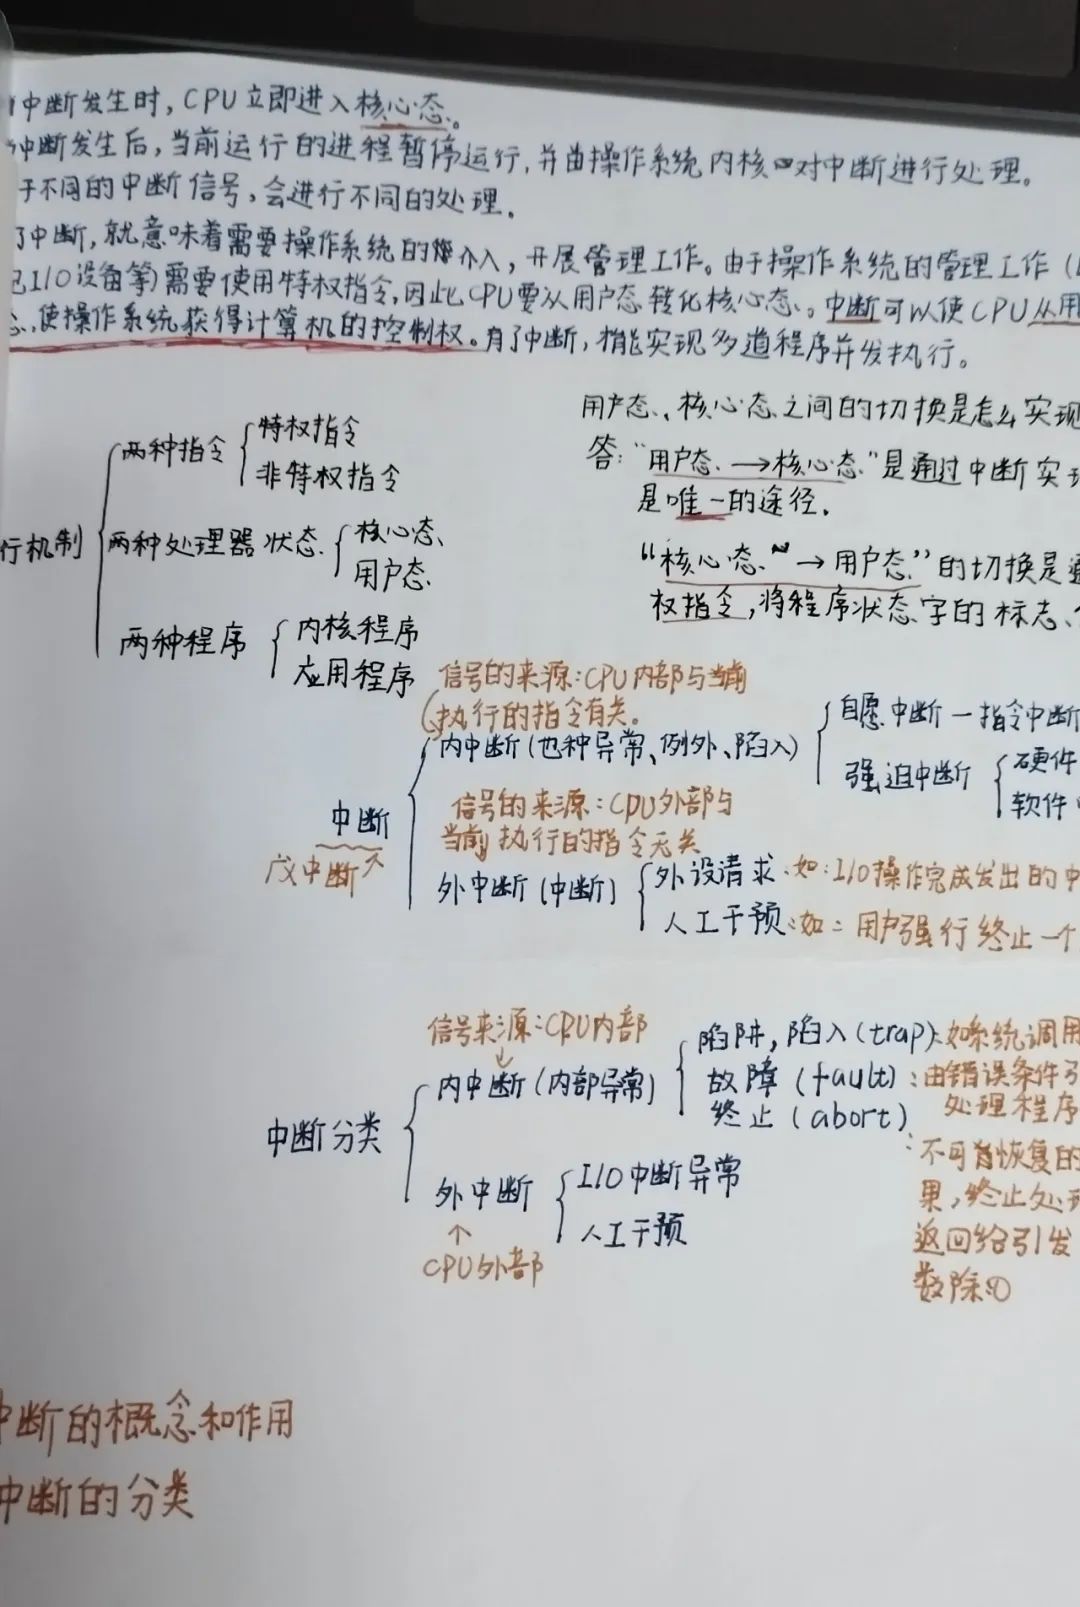 中断发生时，CPU立即进入核心态。
中断发生后，当前运行的进程暂停运行，并由操作系统内核对中断进行处理。
于不同的中断信号，会进行不同的处理。
了中断，就意味着需要操作系统的介入，开展管理工作。由于操作系统的管理工作（
I/O设备等）需要使用特权指令，因此CPU要从用户态转化核心态。中断可以使CPU从用
态，使操作系统获得计算机的控制权。有了中断，才能实现多道程序并发执行。
用户态、核心态之间的切换是怎么实现
答：“用户态→核心态”是通过中断实现
是唯一的途径。
“核心态”→用户态”的切换是通
权指令，将程序状态字的标志、
行机制
两种指令
特权指令
非特权指令
两种处理器状态
核心态
用户态
两种程序
内核程序
应用程序
信号的来源：CPU内部与当前
执行的指令有关。
中断
广义中断
内中断（也种异常、例外、陷入）
自愿中断－指令中断
强迫中断
硬件
软件
信号的来源：CPU外部与
当前执行的指令无关
外中断（中断）
外设请求：如：I/O操作完成发出的中
人工干预：如：用户强行终止一个
中断分类
信号来源：CPU内部
内中断（内部异常）
陷阱，陷入（trap）：如系统调用
故障（fault）：由错误条件引
处理程序
终止（abort）
：不可恢复的
果，终止处理
返回给引发
数除：0
外中断
I/O中断异常
人工干预
↑
CPU外部
中断的概念和作用
中断的分类